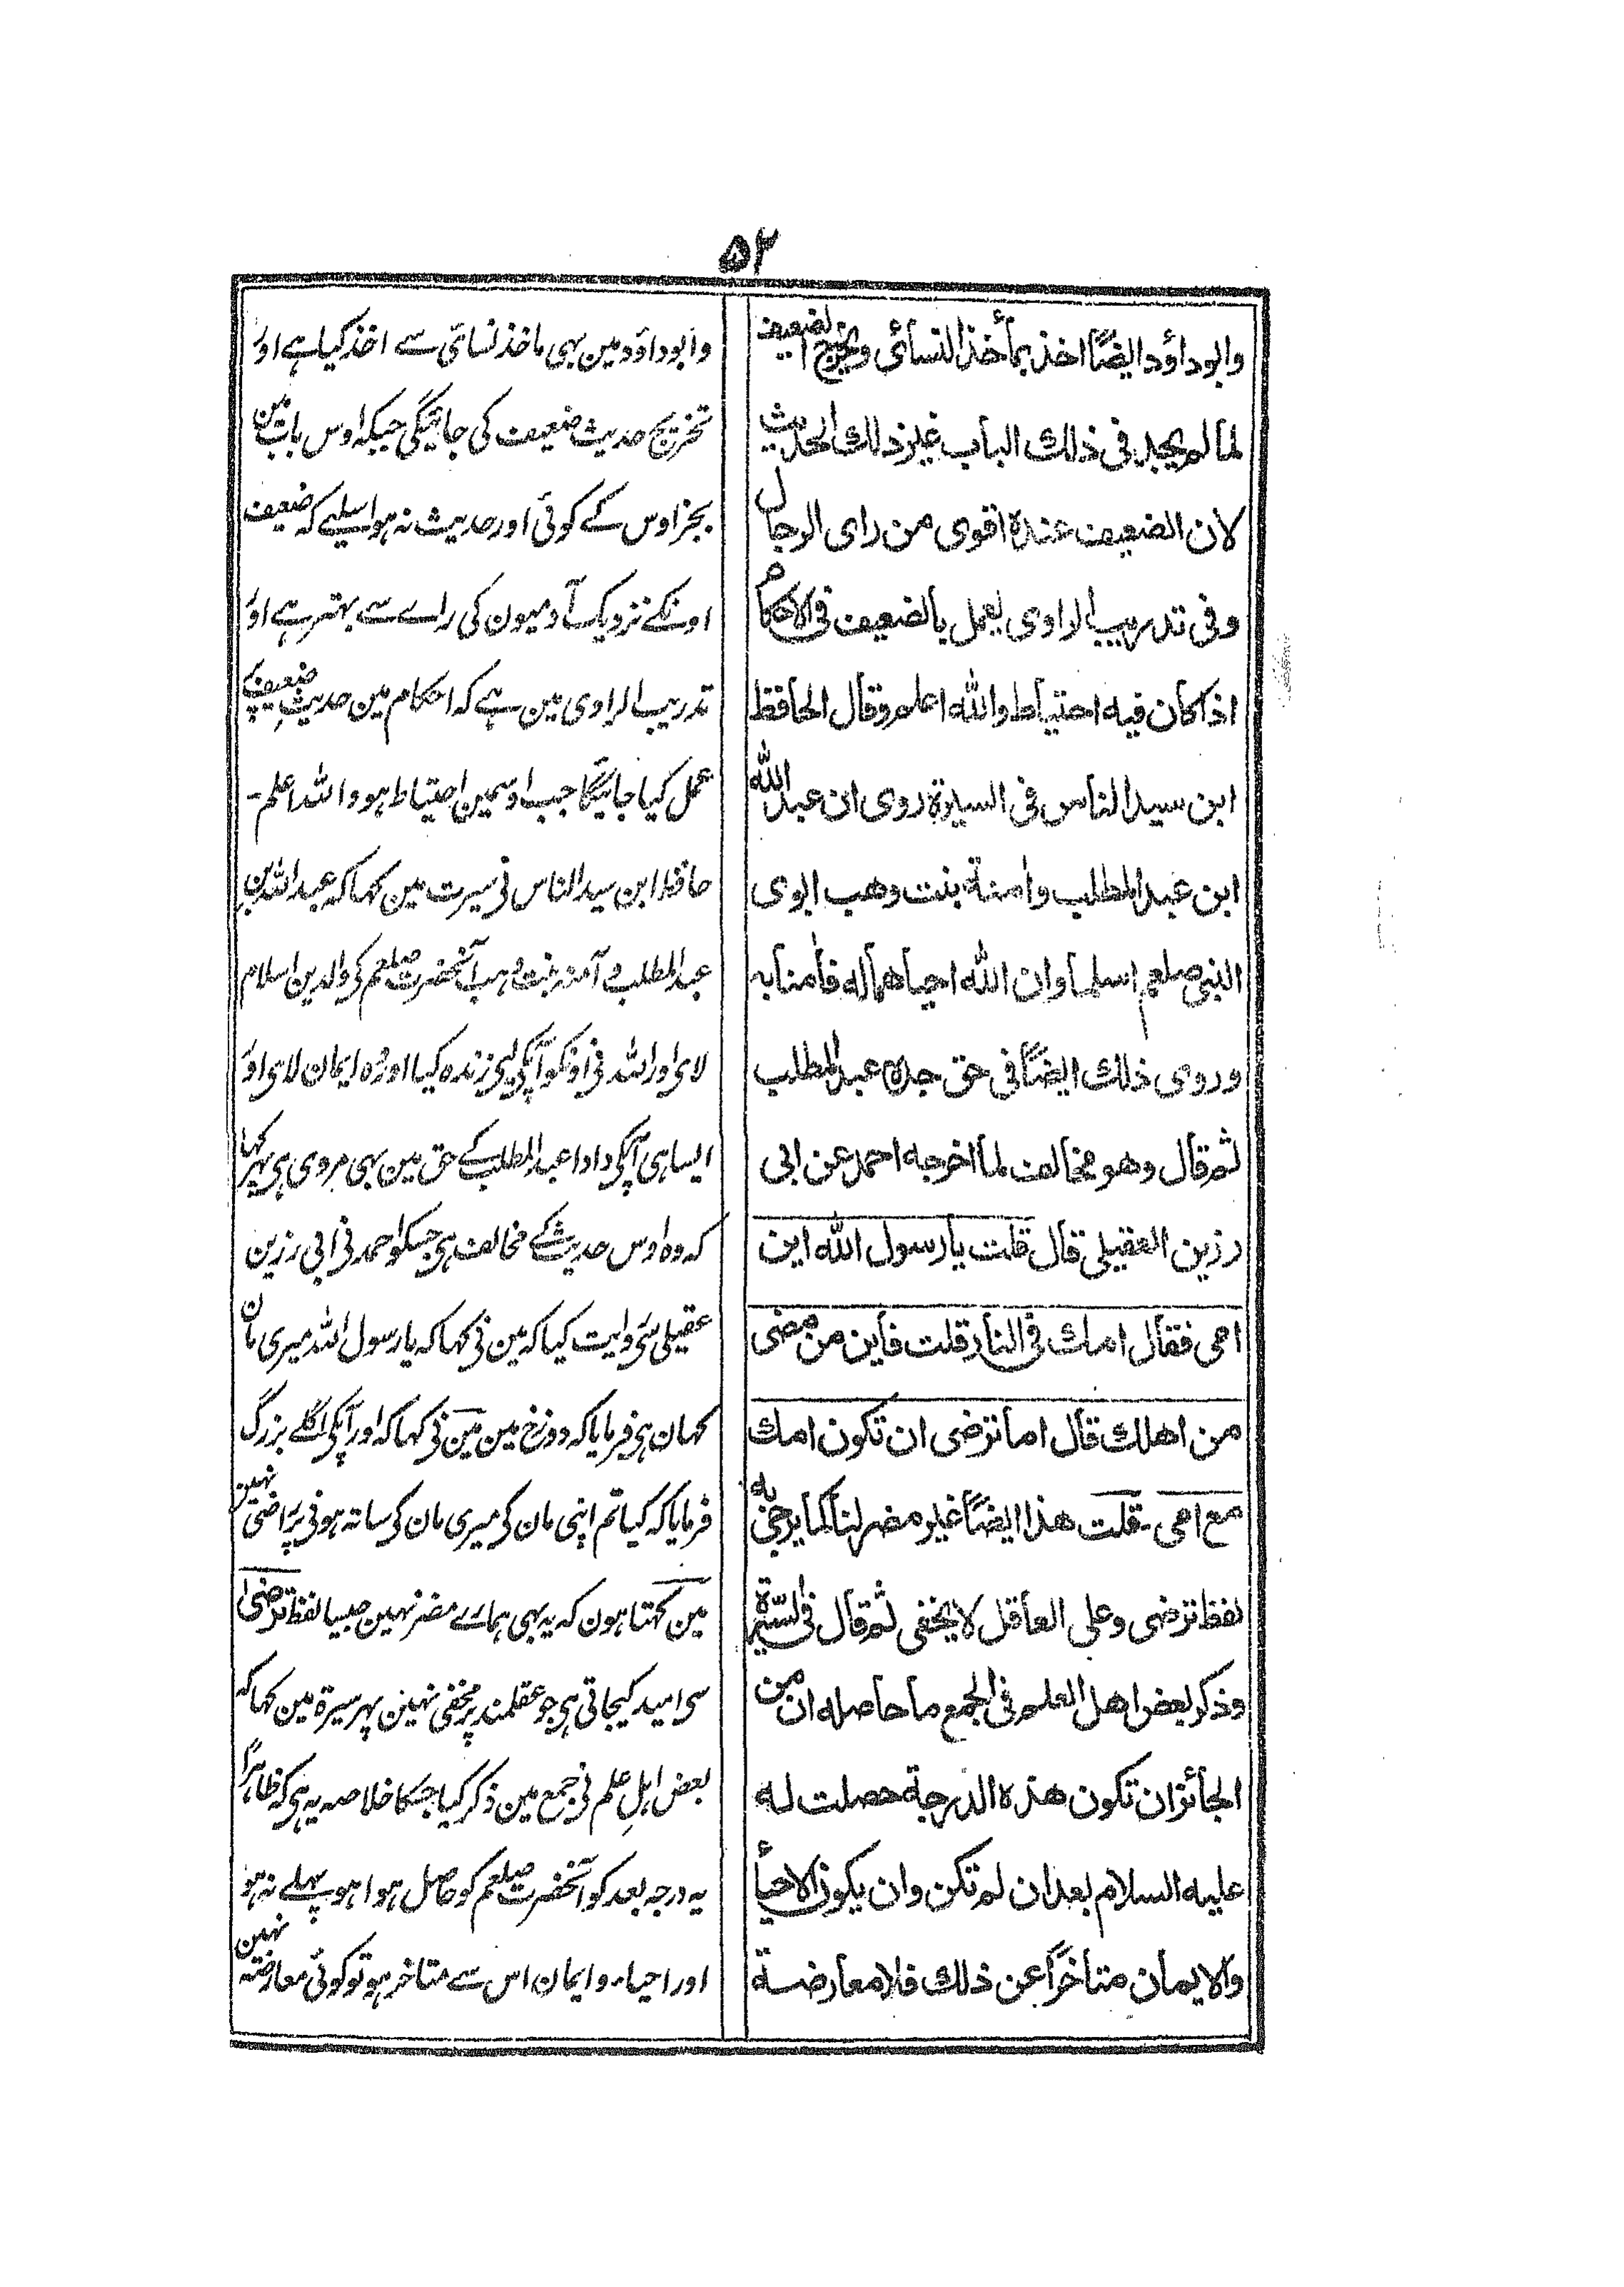 ۵۲
وابوداؤد ایضًا اخذ بمأخذ النسائی ویخرج الضعیف
لما لم یجد فی ذلك الباب غیر ذلك الحدیث
لان الضعیف عندہ اقوی من رای الرجال
وفی تدریب الراوی یعمل بالضعیف فی الاحکام
اذا کان فیه احتیاط واللہ اعلم وقال الحافظ
ابن سید الناس فی السیرة روی ان عبد اللہ
ابن عبد المطلب وامنة بنت وهب ابوی
النبی صلعم اسلما وان اللہ احیاهما له فاٰمنا به
وروی ذلك ایضًا فی حق جدہ عبد المطلب
ثم قال وهو مخالف لما اخرجه احمد عن ابی
رزین العقیلی قال قلت یا رسول اللہ این
امی فقال امك فی النار قلت فاین من مضی
من اهلك قال اما ترضی ان تکون امك
مع امی - قلت هذا ایضًا غیر مضر لنا کما یرجی به
لفظ ترضی وعلی العاقل لا یخفی ثم قال فی السیرة
وذکر بعض اهل العلم فی الجمع ما حاصله ان من
الجائز ان تکون هذہ الدرجة حصلت له
علیه السلام بعد ان لم تکن وان یکون الاحیأ
والایمان متاخرًا عن ذلك فلا معارضة
وابوداؤد مین بهی ماخذ نسائی سے اخذ کیا ہے اور
تخریج حدیث ضعیف کی جائیگی جبکہ اوس باب مین
بجز اوس کے کوئی اور حدیث نہ ہو اسلیے کہ ضعیف
اونکے نزدیک آدمیون کی راے سے بہتر ہے اور
تدریب الراوی مین ہے کہ احکام مین حدیثِ ضعیف پر
عمل کیا جائیگا جب اوسمین احتیاط ہو واللہ اعلم -
حافظ ابن سید الناس نی سیرت مین کہا کہ عبد اللہ بن
عبد المطلب و آمنہ بنت وہب آنحضرت صلعم کی والدین اسلام
لای اور اللہ نی اونکو آپکی لئی زندہ کیا اور وہ ایمان لای اور
ایسا ہی آپکی دادا عبد المطلب کے حق مین بهی مروی ہی پہر کہا
کہ وہ اوس حدیث کے مخالف ہی جسکو احمد نی ابی رزین
عقیلی سی روایت کیا کہ مین نی کہا کہ یا رسول اللہ میری مان
کہان ہی فرمایا کہ دوزخ مین مین نی کہا کہ اور آپکی اگلے بزرگ
فرمایا کہ کیا تم اپنی مان کی میری مان کی ساتہ ہونی پر راضی نہین
مین کہتا ہون کہ یہ بهی ہمارے مضر نہین جیسا لفظ ترضیٰ
سی امید کیجاتی ہی جو عقلمند پر مخفی نہین پہر سیرة مین کہا کہ
بعض اہلِ علم نی جمع مین ذکر کیا جسکا خلاصہ یہ ہی کہ ظاہراً
یہ درجہ بعد کو آنحضرت صلعم کو حاصل ہوا ہو پہلے نہ ہو
اور احیاء و ایمان اس سے متاخر ہو تو کوئی معارضہ نہین